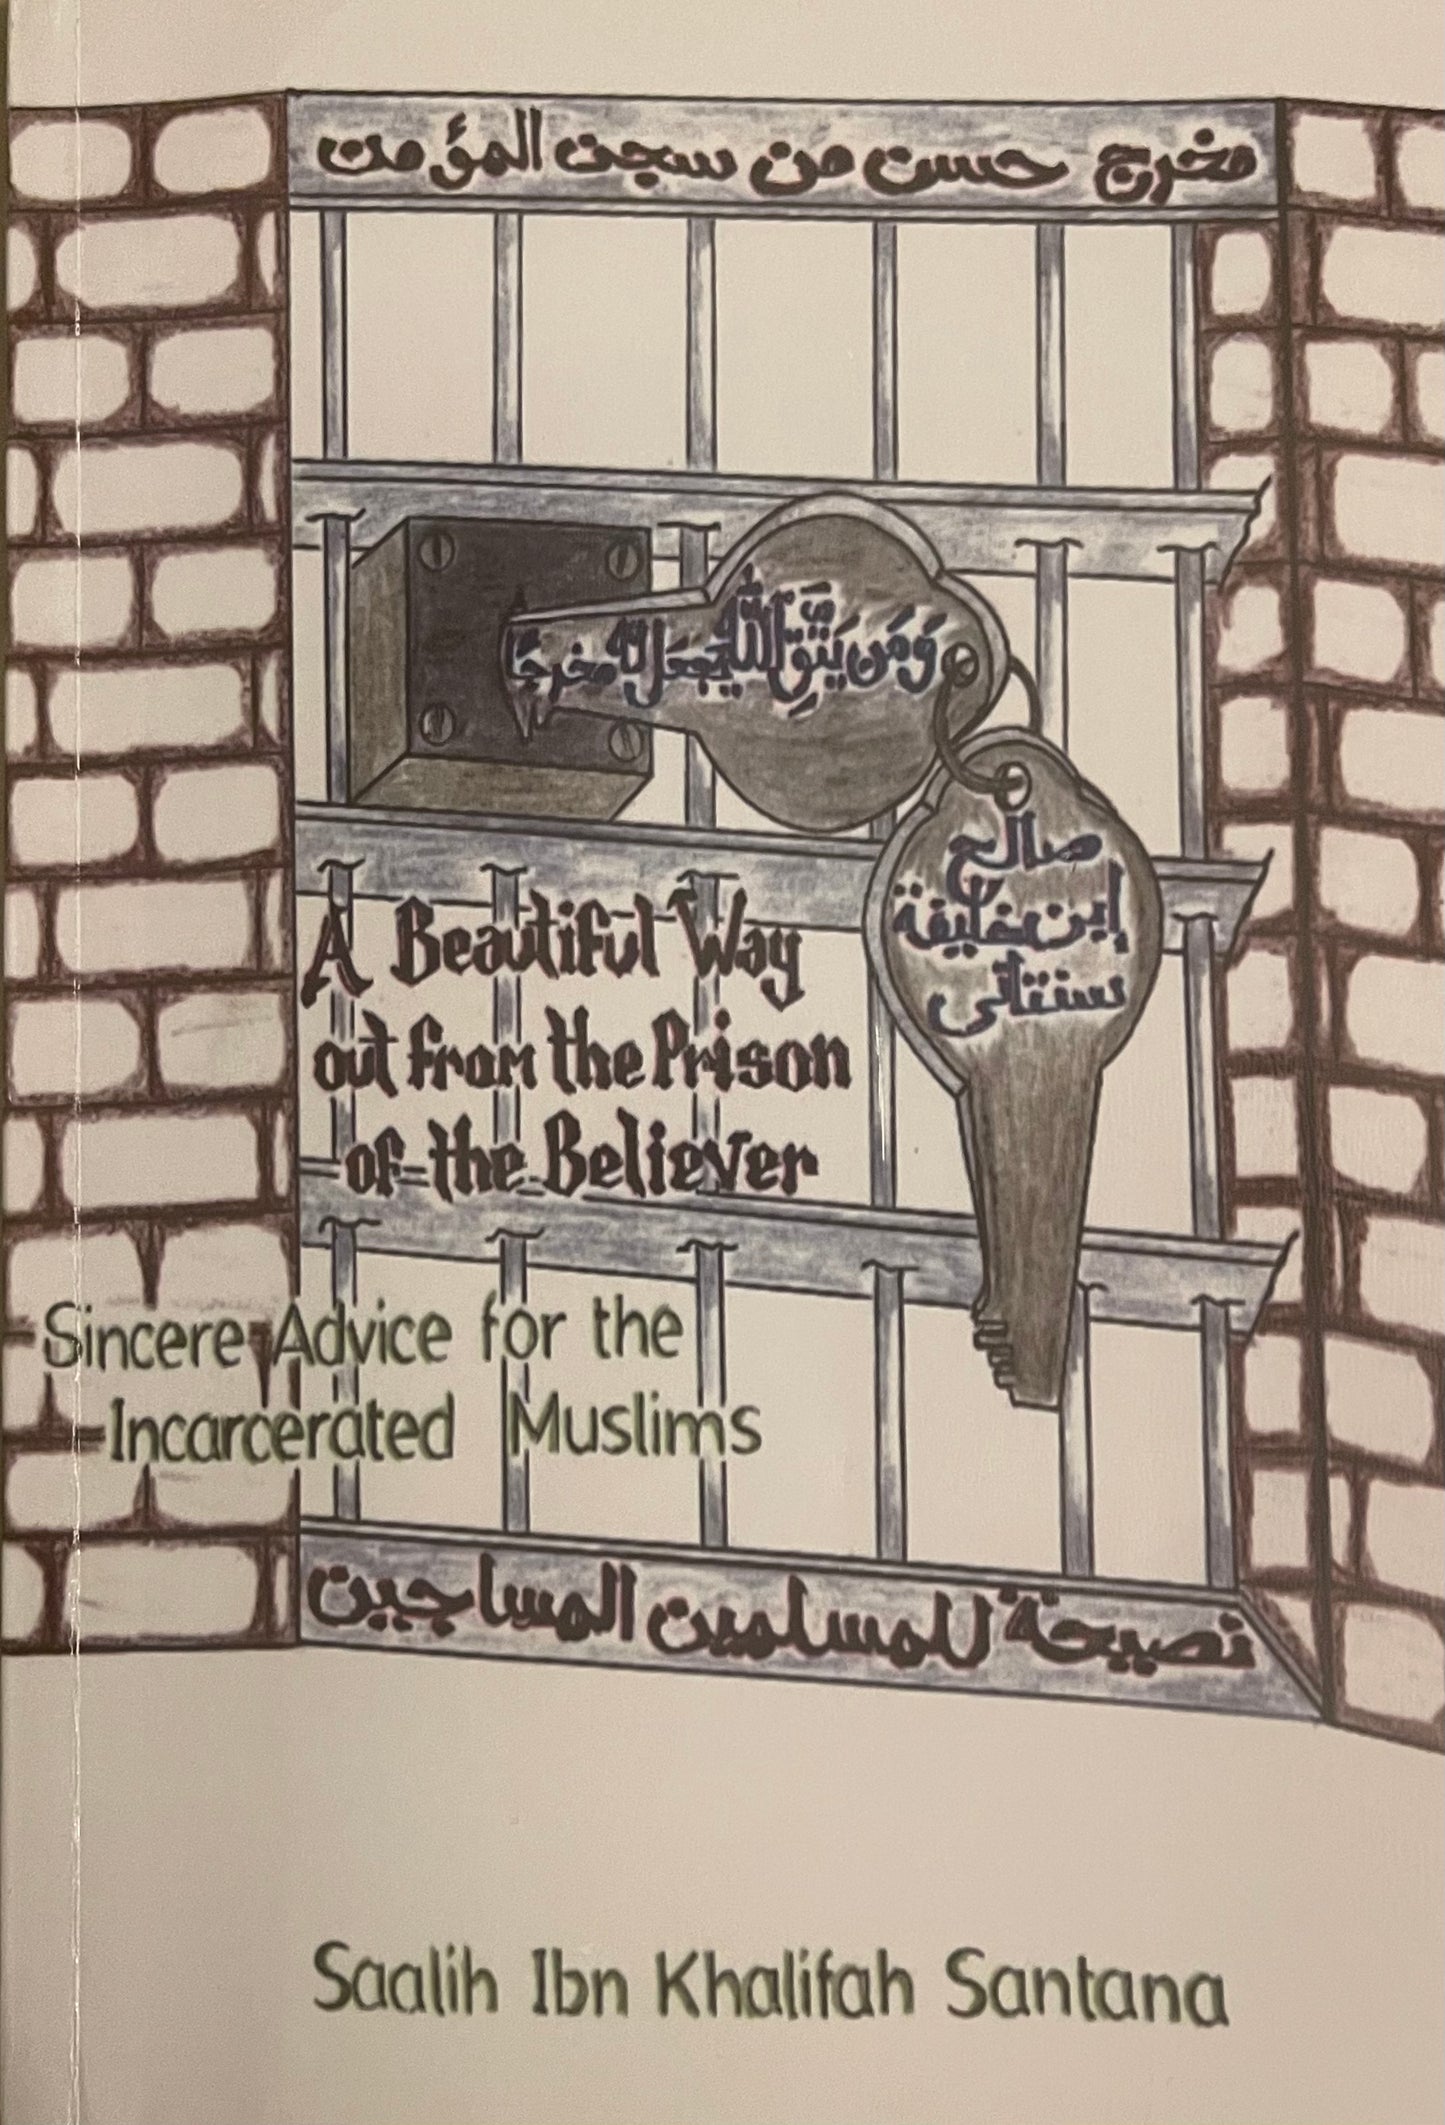 مخرج حسن من سجن المؤمن
وَمَن يَتَّقِ اللَّهَ يَجعَل لَّهُ مخرجًا
صالح
إبن خليفة
سنتانى
A Beautiful Way
out from the Prison
of the Believer
Sincere Advice for the
Incarcerated Muslims
نصيحة للمسلمين المساجين
Saalih Ibn Khalifah Santana